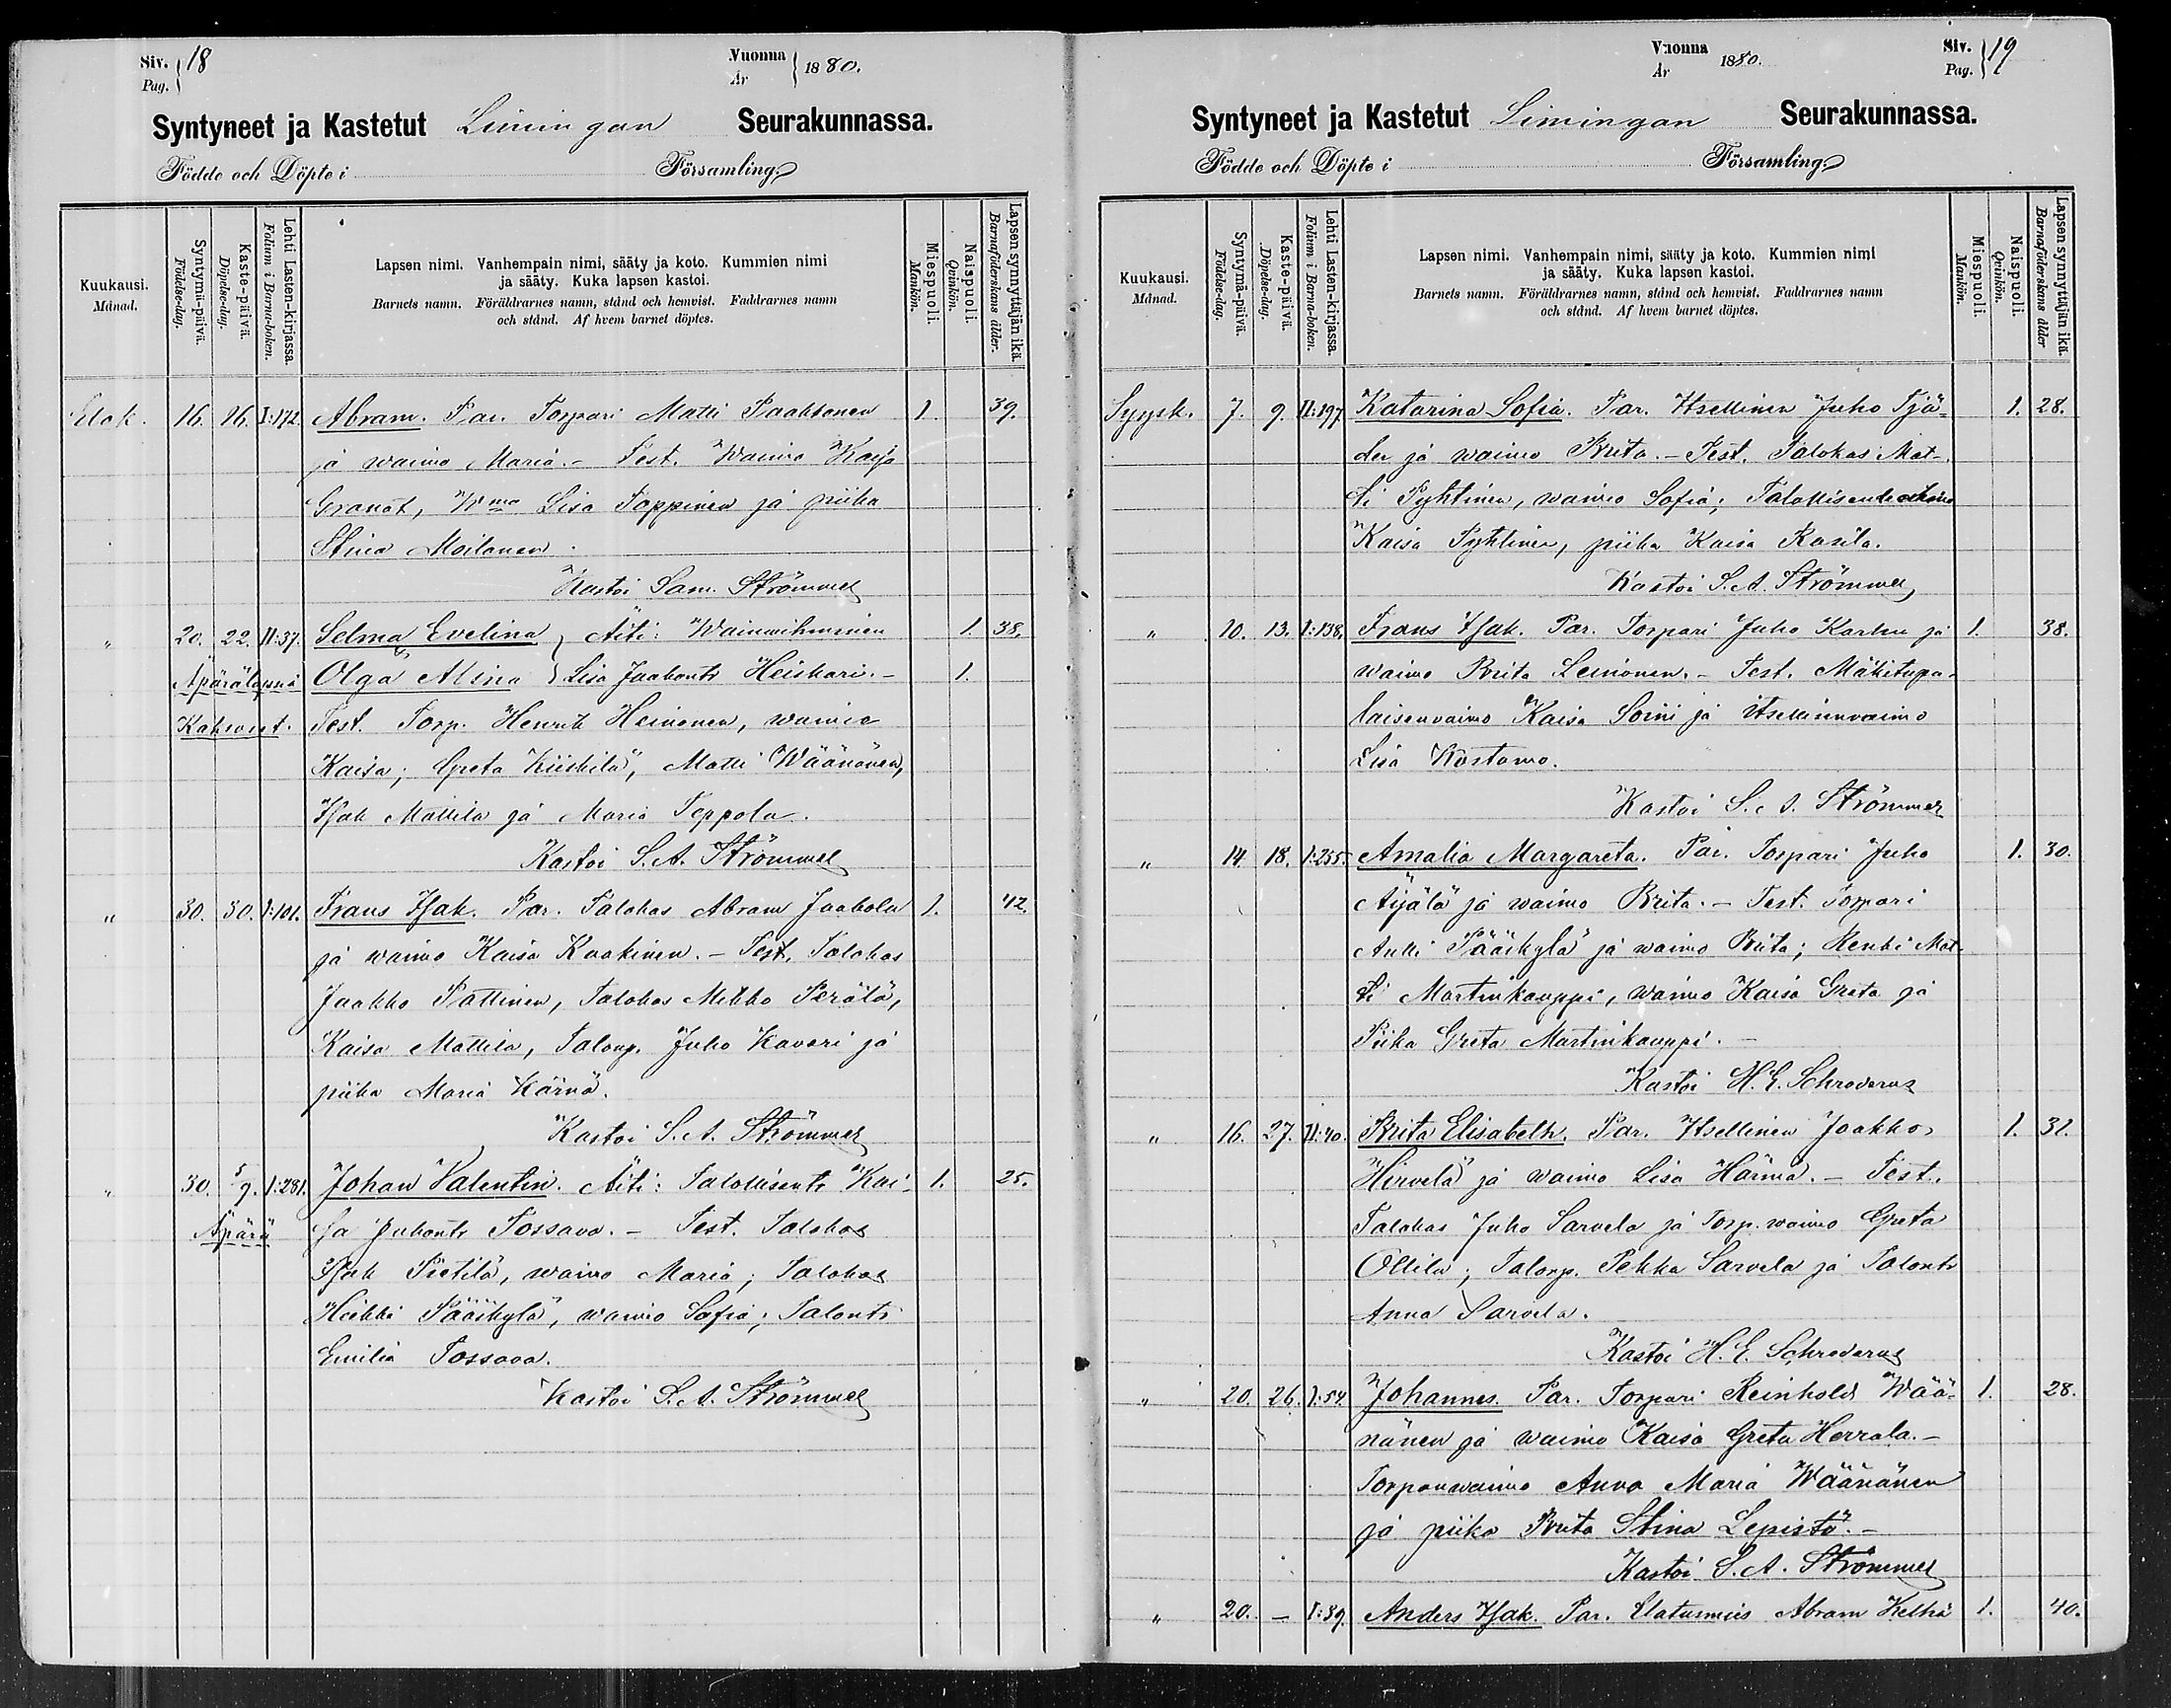 Siv. 18
Pag.
Vuonna 1880.
År
Syntyneet ja Kastetut Limingan Seurakunnassa.
Födde och Döpte i Församling.
Kuukausi.
Månad.
Syntymä-päivä.
Födelse-dag.
Kaste-päivä.
Döpelse-dag.
Lehti Lasten-kirjassa.
Folium i Barna-boken.
Lapsen nimi. Vanhempain nimi, sääty ja koto. Kummien nimi
ja sääty. Kuka lapsen kastoi.
Barnets namn. Föräldrarnes namn, stånd och hemvist. Faddrarnes namn
och stånd. Af hvem barnet döptes.
Miespuoli.
Mankön.
Naispuoli.
Qvinkön.
Lapsen synnyttäjän ikä.
Barnaföderskans ålder.
Elok. 16. 26. I:172. Abram. Par. Torpari Matti Paakkonen 1. 39.
ja waimo Maria. - Test. Waimo Kaisa
Granat, Wmo Lisa Toppinen ja piika
Stina Moilanen
Kastoi Sam. Strömmer
" 20. 22. II:37. Selma Evelina } Äiti: Waimoihminen 1. 38.
Äpärälapsia Olga Alina } Lisa Jaakontr Heiskari. - 1.
Kaksoset. Test. Torp. Henrik Heinonen, waimo
Kaisa; Greta Kiiskilä, Matti Wäänänen,
Isak Mattila ja Maria Teppola.
Kastoi S. A. Strömmer
" 30. 30. I:101. Frans Isak. Par. Talokas Abram Jaakola 1. 42.
ja waimo Kaisa Kaakinen. - Test. Talokas
Jaakko Pattinen, Talokas Mikko Perälä,
Kaisa Mattila, Talonp. Juho Kavari ja
piika Maria Kärnä.
Kastoi S. A. Strömmer
" 30. 5/9. I:281. Johan Valentin. Äiti: Talollisentr Kai- 1. 25.
Äpärä sa Juhontr Tossava. - Test. Talokas
Isak Pietilä, waimo Maria; Talokas
Heikki Pääskylä, waimo Sofia; Talontr
Emilia Tossava.
Kastoi S. A. Strömmer
Vuonna 1880.
År
Siv. 19
Pag.
Syntyneet ja Kastetut Limingan Seurakunnassa.
Födde och Döpte i Församling.
Kuukausi.
Månad.
Syntymä-päivä.
Födelse-dag.
Kaste-päivä.
Döpelse-dag.
Lehti Lasten-kirjassa.
Folium i Barna-boken.
Lapsen nimi. Vanhempain nimi, sääty ja koto. Kummien nimi
ja sääty. Kuka lapsen kastoi.
Barnets namn. Föräldrarnes namn, stånd och hemvist. Faddrarnes namn
och stånd. Af hvem barnet döptes.
Miespuoli.
Mankön.
Naispuoli.
Qvinkön.
Lapsen synnyttäjän ikä.
Barnaföderskans ålder
Syysk. 7. 9. II:197. Katarina Sofia. Par. Itsellinen Juho Tjä- 1. 28.
der ja waimo Brita. - Test. Talokas Mat-
ti Pyhtinen, waimo Sofia;
Kaisa Pyhtinen, piika Kaisa Kasila.
Kastoi S. A. Strömmer
" 10. 13. I:138. Frans Isak. Par. Torpari Juho Karhu ja 1. 38.
waimo Brita Leinonen. - Test. Mäkitupa-
laisenvaimo Kaisa Soini ja itsellisenvaimo
Lisa Kostamo.
Kastoi S. A. Strömmer
" 14. 18. I:255. Amalia Margareta. Par. Torpari Juho 1. 30.
Äijälä ja waimo Brita. - Test. Torpari
Antti Pääskylä ja waimo Brita; Renki Mat-
ti Martinkauppi, waimo Kaisa Greta ja
Piika Greta Martinkauppi. -
Kastoi H. E. Schroderus
" 16. 27. II:40. Brita Elisabeth. Par. Itsellinen Jaakko 1. 31.
Hirvelä ja waimo Lisa Härmä. - Test.
Talokas Juho Sarvela ja Torp. waimo Greta
Ollila; Talonp. Pekka Sarvela ja Talontr
Anna Sarvela.
Kastoi H. E. Schroderus
" 20. 26. I:54. Johannes. Par. Torpari Reinhold Wää- 1. 28.
nänen ja waimo Kaisa Greta Herrala. -
Torparinwaimo Anna Maria Wäänänen
ja piika Brita Stina Lepistö. -
Kastoi S. A. Strömmer
" 20. - I:39. Anders Isak. Par. Elatusmies Abram Kelhä 1. 40.